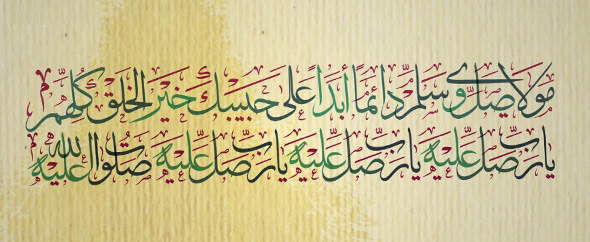 مولا صل وسلم دائما أبدا على حبيبك خير الخلق كلهم
يا رب صل عليه يا رب صل عليه يا رب صل عليه صلوات الله عليه